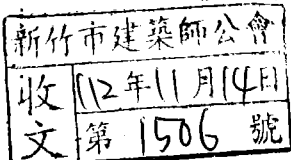 新竹市建築師公會
收文
112年11月14日
第 1506 號